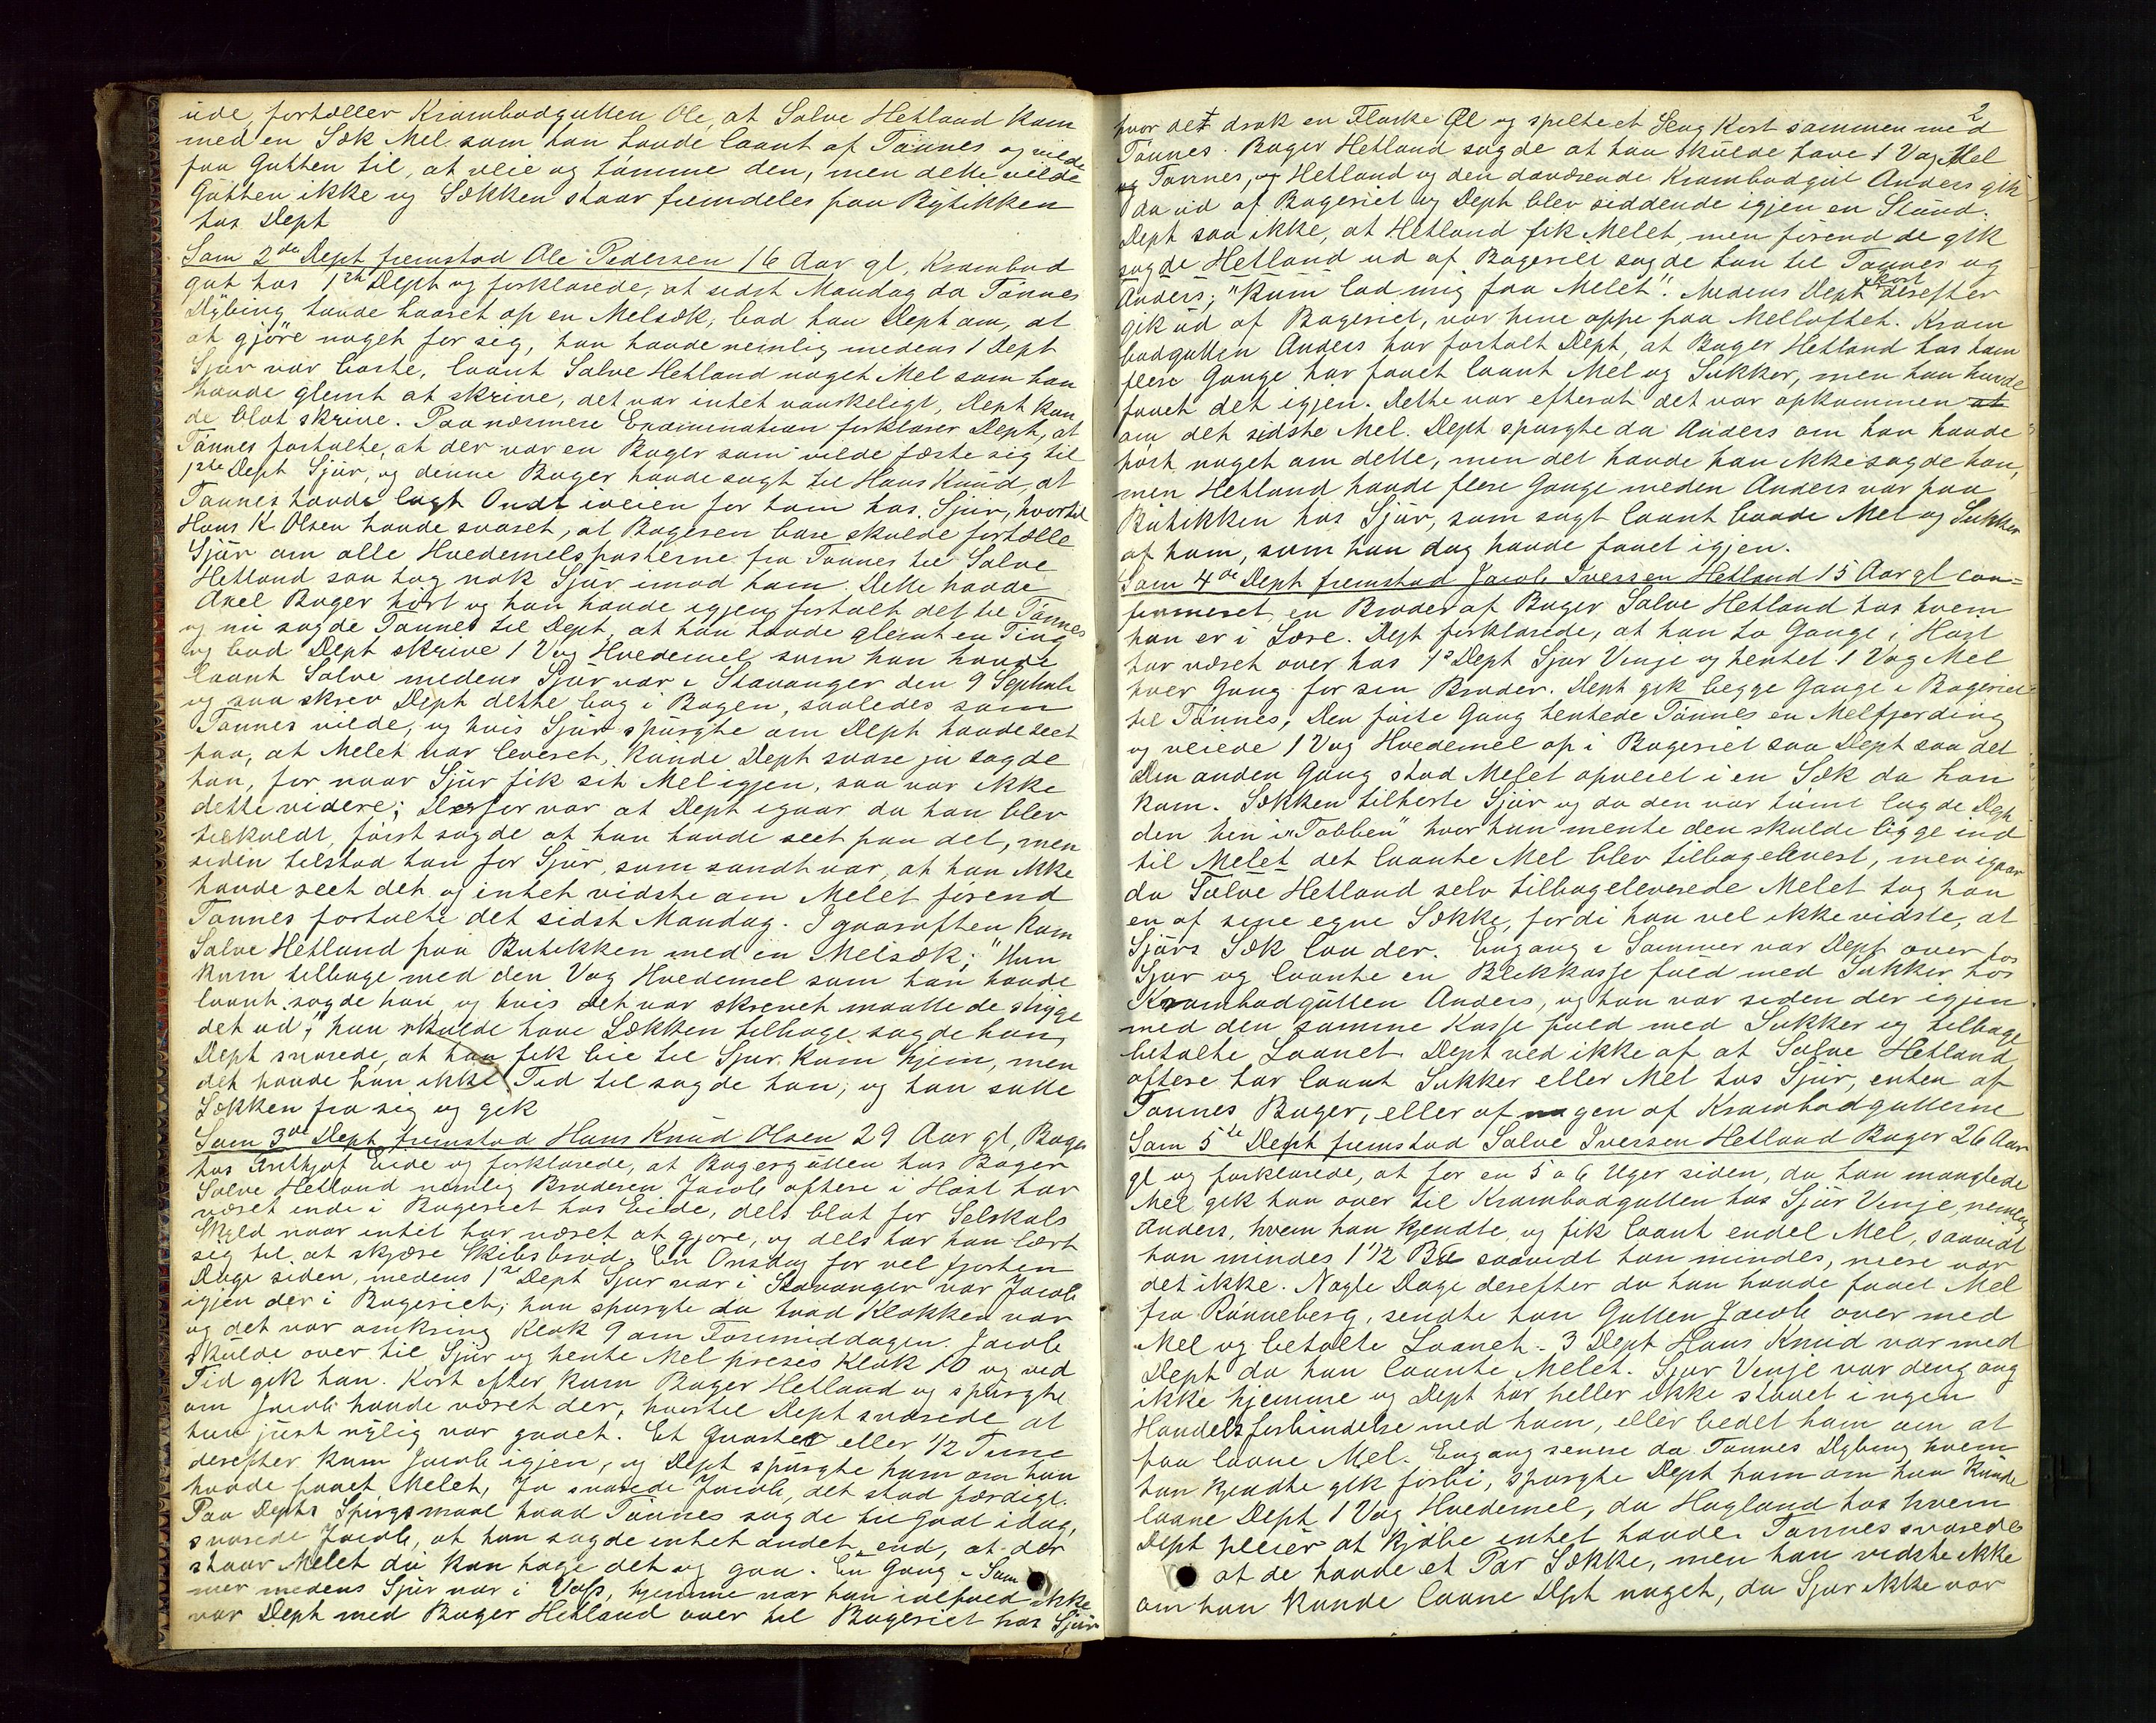 ude, fortæller Krambodgutten Ole, at Salve Hetland kom
med en Sæk Mel som han havde laant af Tønnes og vilde
faa Gutten til, at veie og tømme den, men dette vilde
Gutten ikke og Sækken staar fremdeles paa Butikken
hos Dept
Som 2den Dept fremstod Ole Pedersen 16 Aar gl, Krambod
gut hos 1ste Dept og forklarede, at sidst Mandag da Tønnes
Dybing havde baaret op en Melsæk, bad han Dept om, at
at gjöre noget for sig, han havde nemlig medens 1 Dept
Sjur var borte, laant Salve Hetland noget Mel som han
havde glemt at skrive, det var intet vanskeligt, Dept kun
de blot skrive. Paa nærmere Examination forklarer Dept, at
Tönnes fortalte, at der var en Bager som vilde fæste sig til
1ste Dept Sjur, og denne Bager havde sagt til Hans Knud, at
Tønnes havde lagt Ondt iveien for ham hos Sjur, hvortil
Hans K Olsen havde svaret, at Bageren bare skulde fortælle
Sjur om alle Hvedemelsposterne fra Tønnes til Salve
Hetland saa tog nok Sjur imod ham. Dette havde
Axel Bager hört og han havde igjen fortalt det til Tønnes
og nu sagde Tønnes til Dept, at han havde glemt en Ting
og bad Dept skrive 1 Vog Hvedemel som han havde
laant Salve medens Sjur var i Stavanger den 9 Septemb
og saa skrev Dept dette bag i Bogen, saaledes som
Tønnes vilde, og hvis Sjur spurgte om Dept havde seet
paa, at Melet var leveret, kunde Dept svare ja sagde
han, for naar Sjur fik sit Mel igjen, saa var ikke
dette videre; Derfor var at Dept igaar da han blev
tilkaldt, först sagde at han havde seet paa det, men
siden tilstod han for Sjur, som sandt var, at han ikke
havde seet det og intet vidste om Melet förend
Tønnes fortalte det sidst Mandag. I gaaraften kom
Salve Hetland paa Butikken med en Melsæk; "Han
kom tilbage med den Vog Hvedemel som han havde
laant, sagde han og hvis det var skrevet maatte de stryge
det ud;" han skulde have Sækken tilbage sagde han,
Dept svarede, at han fik bie til Sjur kom hjem, men
det havde han ikke Tid til sagde han; og han satte
Sækken fra sig og gik
Som 3die Dept fremstod Hans Knud Olsen 29 Aar gl, Bager
hos Frithjof Eide og forklarede, at Bagergutten hos Bager
Salve Hetland nemlig Broderen Jacob oftere i Høst har
været inde i Bageriet hos Eide, dels blot for Selskabs
Skyld naar intet har været at gjøre, og dels har han lært
sig til at skjære Skibsbrød. En Onsdag for vel fjorten
Dage siden, medens 1ste Dept Sjur var i Stavanger var Jacob
igjen der i Bageriet; han spurgte da hvad Klokken var
og det var omkring Klok 9 om Formiddagen. Jacob
skulde over til Sjur og hente Mel præcis Klok 10 og ved
Tid gik han. Kort efter kom Bager Hetland og spurgte
om Jacob havde været der, hvortil Dept svarede at
han just nylig var gaaet. Et Qvarter eller 1/2 Time
derefter kom Jacob igjen, og Dept spurgte ham om han
havde faaet Melet, Ja svarede Jacob, det stod færdigt.
Paa Depts Spörgsmaal hvad Tønnes sagde til Godt idag,
svarede Jacob, at han sagde intet andet end, at der
staar Melet du kan tage det og gaa. En Gang i Som
mer medens Sjur var i Voss, hjemme var han ialfald ikke
var Dept med Bager Hetland over til Bageriet hos Sjur
2
hvor det drak en Flaske Øl og spilte et Slag Kort sammen med
Tønnes. Bager Hetland sagde at han skulde have 1 Vog Mel
og Tønnes, og Hetland og den daværende Krambodgut Anders gik
da ud af Bageriet og Dept blev siddende igjen en Stund.
Dept saa ikke, at Hetland fik Melet, men forend de gik
sagde Hetland ud af Bageriet sagde han til Tønnes og
Anders; "Kom lad mig faa Melet". Medens Dept kort derefter
gik ud af Bageriet, var hine oppe paa Melloftet. Kram
bodgutten Anders har fortalt Dept, at Bager Hetland hos ham
flere Gange har faaet laant Mel og Sukker, men han havde
faaet det igjen. Dette var efterat det var opkommen at
om det sidste Mel. Dept spurgte da Anders om han havde
hört noget om dette, men det havde han ikke sagde han,
men Hetland havde flere Gange meden Anders var paa
Butikken hos Sjur, som sagt laant baade Mel og Sukker
af ham, som han dog havde faaet igjen.
Som 4de Dept fremstod Jacob Iversen Hetland 15 Aar gl con=
firmeret en Broder af Bager Salve Hetland hos hvem
han er i Lære. Dept forklarede, at han to Gange i Høst
har været over hos 1ste Dept Sjur Vinje og hentet 1 Vog Mel
hver Gang for sin Broder. Dept gik begge Gange i Bageriet
til Tønnes; Den første Gang hentede Tønnes en Melfjerding
og veiede 1 Vog Hvedemel op i Bageriet saa Dept saa det
Den anden Gang stod Melet opveiet i en Sæk da han
kom. Sækken tilhørte Sjur og da den var tømt lagde Dept
den hen i "Tobben" hvor han mente den skulde ligge ind
til Melet det laante Mel blev tilbageleveret, men igaar
da Salve Hetland selv tilbageleverede Melet tog han
en af sine egne Sække, fordi han vel ikke vidste, at
Sjurs Sæk laa der. Engang i Sommer var Dept over hos
Sjur og laante en Blikkasse fuld med Sukker hos
Krambodgutten Anders, og han var siden der igjen
med den samme Kasse fuld med Sukker og tilbage
betalte Laanet. Dept ved ikke af at Salve Hetland
oftere har laant Sukker eller Mel hos Sjur, enten af
Tønnes Bager, eller af nogen af Krambodgutterne
Som 5te Dept fremstod Salve Iversen Hetland Bager 26 Aar
gl og forklarede, at for en 5 a 6 Uger siden, da han manglede
Mel gik han over til Krambodgutten hos Sjur Vinje, nemlig
Anders, hvem han kjendte, og fik laant endel Mel, saavidt
han mindes 1 1/2 saavidt han mindes, mere var
det ikke. Nogle Dage derefter da han havde faaet Mel
fra Rønneberg, sendte han Gutten Jacob over med
Mel og betalte Laanet. 3 Dept Hans Knud var med
Dept da han laante Melet. Sjur Vinje var dengang
ikke hjemme og Dept har heller ikke staaet i ngen
Handelsforbindelse med ham, eller bedet ham om at
faa laane Mel. Engang senere da Tønnes Dybing hvem
han kjendte gik forbi, spurgte Dept ham om han kunde
laane Dept 1 Vog Hvedemel, da Hagland hos hvem
Dept pleier at kjöbe intet havde. Tønnes svarede
at de havde et Par Sække, men han vidste ikke
om han kunde laane Dept noget, da Sjur ikke var